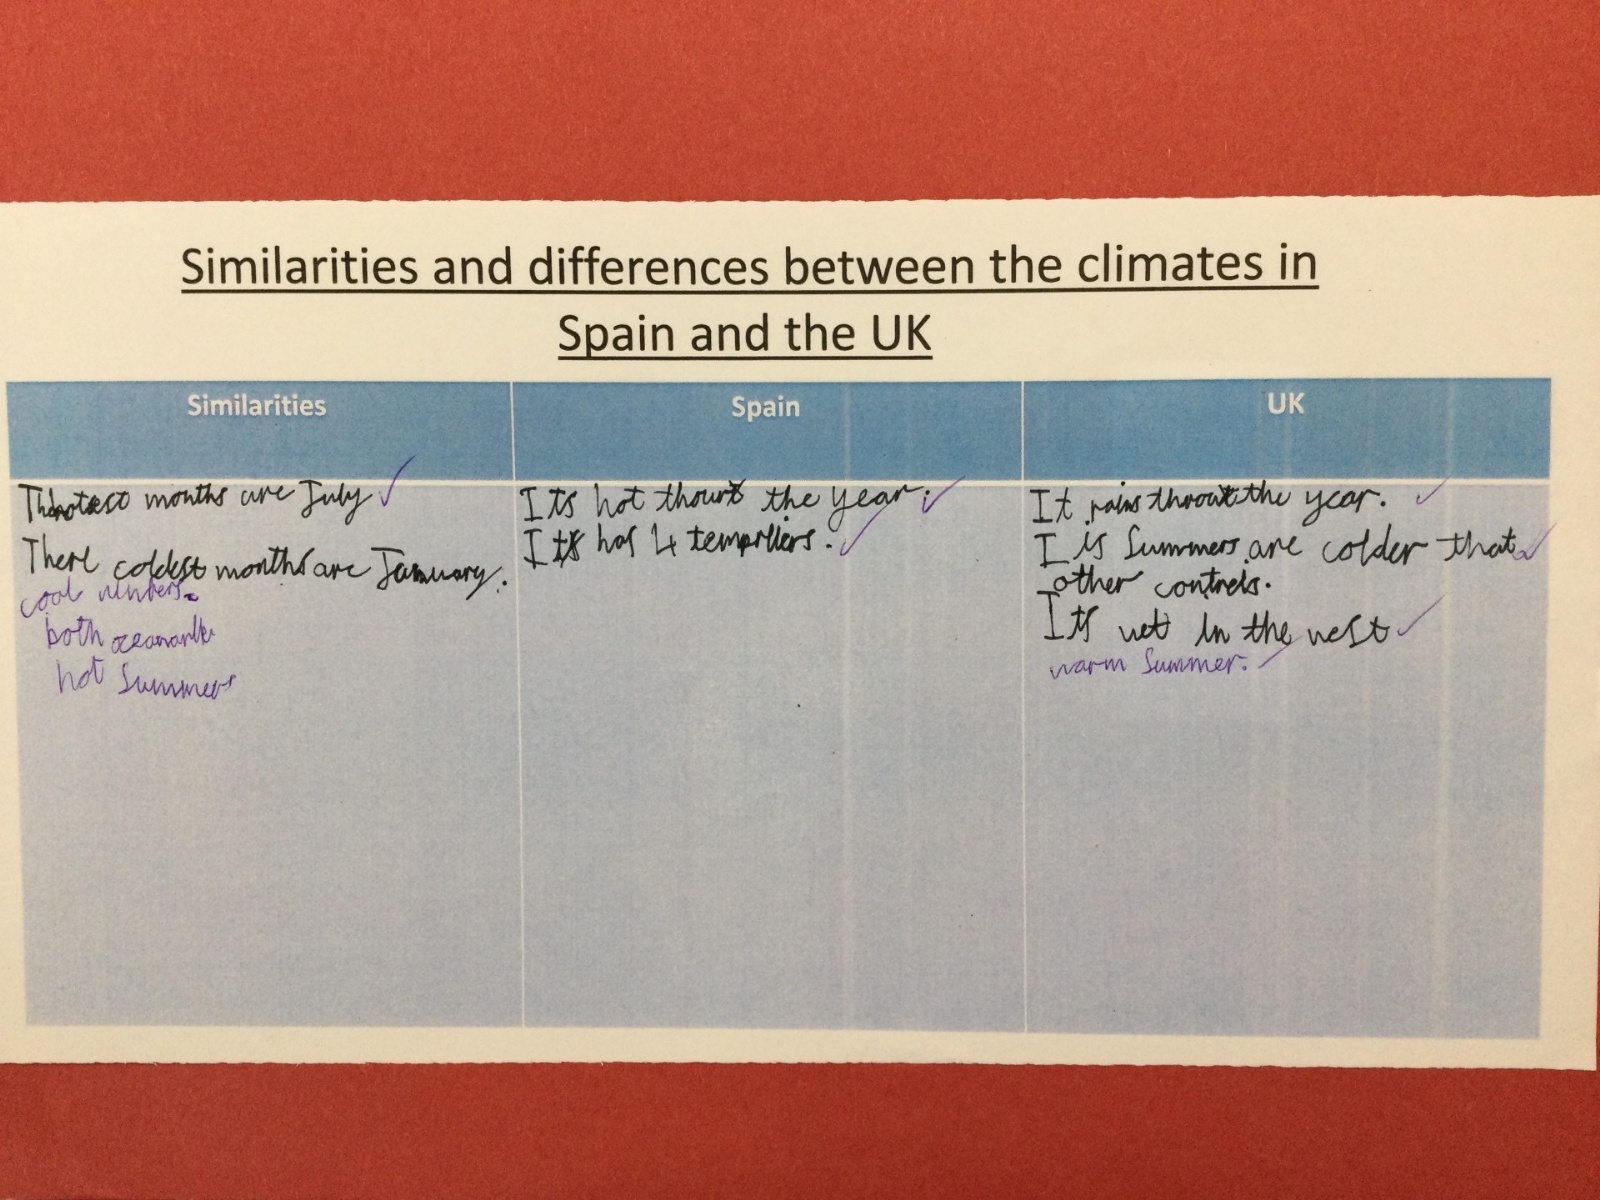 Similarities and differences between the climates in
Spain and the UK
Similarities
Spain
UK
months are July
There coldest months are January.
cool
both
hot Summers
Its hot the year.
Its has 4
It rains the year.
I is Summers are colder that
other
Its wet in the west
warm Summer.